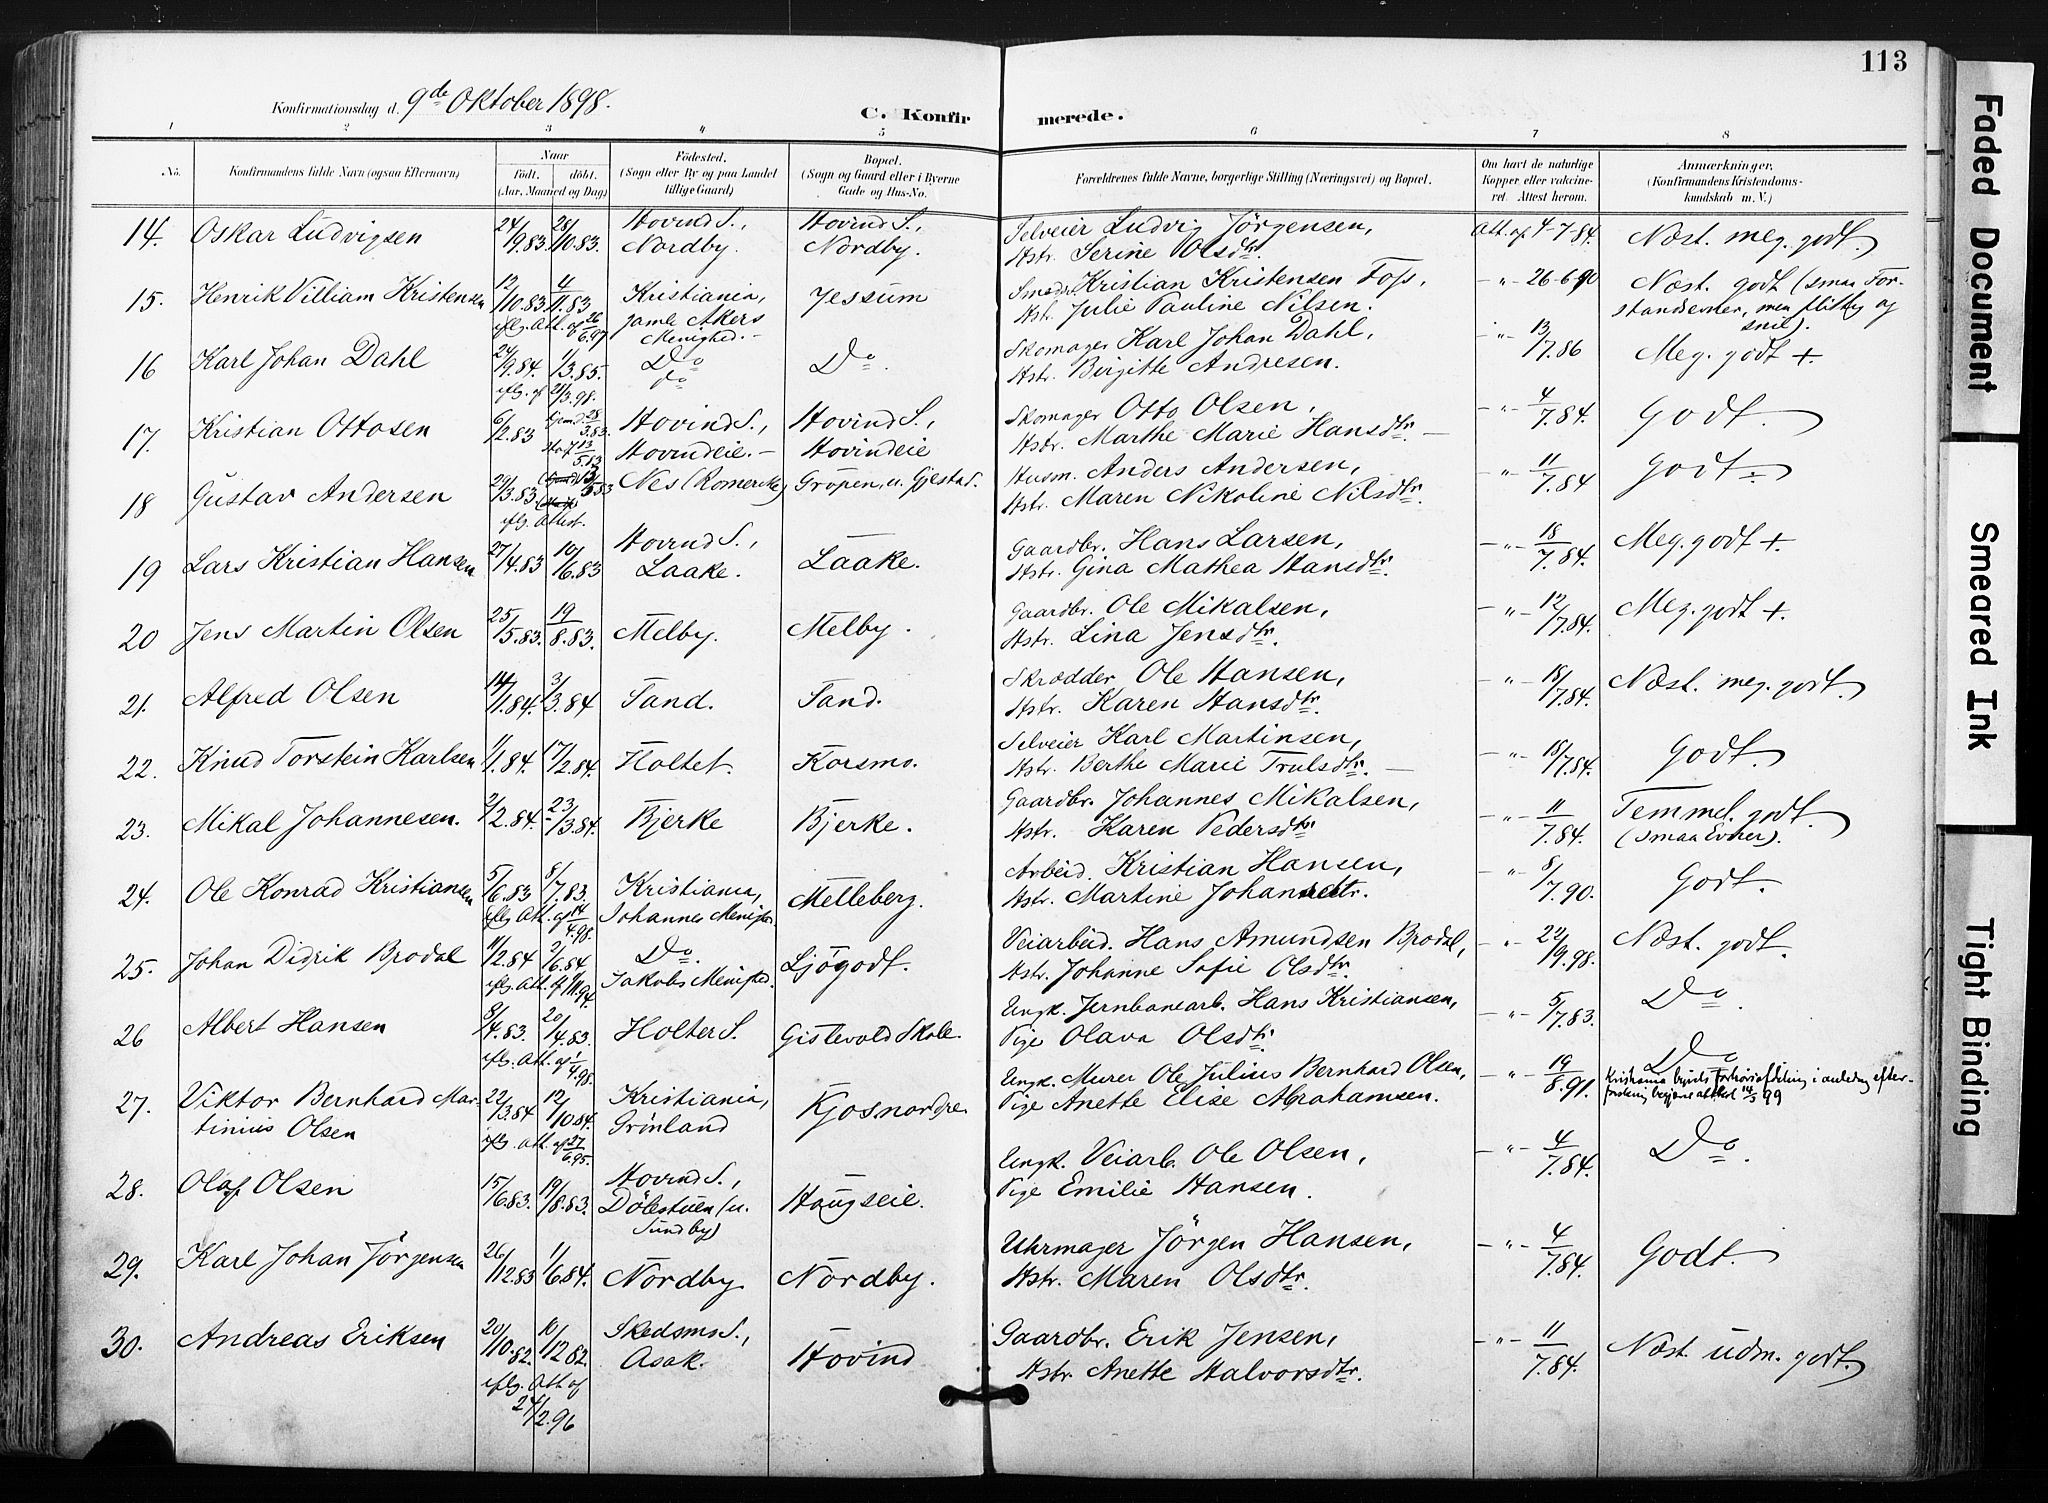 113
Konfirmationsdag d. 9de Oktober 1898.
C. Konfirmerede.
1 2 3 4 5 6 7 8
No. Konfirmandens fulde Navn (ogsaa Efternavn) Naar Födt. döbt. (Aar, Maaned og Dag) Födested. (Sogn eller By og paa Landet tillige Gaard) Bopæl. (Sogn og Gaard eller i Byerne Gade og Hus-No. Forældrenes fulde Navne, borgerlige Stilling (Næringsvei) og Bopæl. Om havt de naturlige Kopper eller vakcineret. Attest herom. Anmærkninger. (Konfirmandens Kristendomskundskab m. V.)
14. Oskar Ludvigsen 24/9.83 28/10.83. Hovind S., Nordby. Hovind S., Nordby. Selveier Ludvig Jörgensen, Hstr. Serine Olsdtr. Att. af 4-7.84. Næst. meg. godt.
15. Henrik Villiam Kristensen 12/10.83 4/11.83 eflg. Att. af 26/6.97 Kristiania, Gamle Akers Menighed.- Jessum Smed Kristian Kristensen Foss, Hstr. Julie Pauline Nilsen. -"- 26-6-90 Næst. godt (smaa Forstandsevner, men flittig og snil).
16 Karl Johan Dahl 24/9.84. 1/3.85. eflg. af 21/3.98. Do do Do. Skomager Karl Johan Dahl, Hstr. Birgitte Andresen. -"- 13/7.86 Meg. godt +
17. Kristian Ottosen 6/2.83 Hovind S., Hovindeie.- Hovind S., Hovindeie Skomager Otto Olsen, Hstr. Marthe Marie Hansdtr. -"- 4/7.84. Godt.
18 Gustav Andersen 29/3.83 eflg. Attest. Nes (Romerike) Gröpen, u. Gjestad. Husm. Anders Andersen, Hstr. Maren Nikoline Nilsdtr. -"- 11/7.84 Godt.
19 Lars Kristian Hansen 27/4.83 10/6.83 Hovind S., Laake. Laake. Gaardbr. Hans Larsen, Hstr. Gina Mathea Hansdtr. -"- 18/7.84. Meg. godt +.
20 Jens Martin Olsen 25/5.83. 19/8.83. Melby. Melby. Gaardbr. Ole Mikalsen, Hstr. Lina Jensdtr. -"- 12/7.84. Meg. godt +
21. Alfred Olsen 14/1.84. 3/3.84 Sand. Sand. Skrædder Ole Hansen, Hstr. Karen Hansdtr. -"- 18/7.84. Næst. meg. godt.
22. Knud Torstein Karlsen 1/1.84. 17/2.84. Holtet. Korsmo. Selveier Karl Martinsen, Hstr. Berthe Marie Trulsdtr. -"- 18/7.84. Godt.
23. Mikal Johannesen. 2/2.84. 23/3.84. Bjerke Bjerke. Gaardbr. Johannes Mikalsen, Hstr. Karen Pedersdtr -"- 11/7.84. Temmel. godt. (smaa Evner).
24. Ole Konrad Kristiansen 5/6.83 8/7.83. eflg Att. af 14/4.98. Kristiania, Johannes Menighed. Melleberg. Arbeid. Kristian Hansen, Hstr. Martine Johansdtr. -"- 8/7.90. Godt.
25. Johan Didrik Brodal 11/2.84 2/6.84 eflg. Att. af 11/11.94. Do. Jakobs Menighed. Ljögodt. Veiarbeid. Hans Amundsen Brodal, Hstr. Johanne Sofie Olsdtr. -"- 22/9.98. Næst. godt.
26 Albert Hansen 8/4.83. 20/4.83. eflg. Att. af 1/4.98. Holter S. Gistevold Skole. Ungk. Jernbanearb. Hans Kristiansen, Pige Olava Olsdtr -"- 5/7.83. Do.
27. Viktor Bernhard Martinius Olsen 22/3.84 12/10.84. eflg. Att. af 27/6.95. Kristiania, Grönland Kjos nordre Ungk. Murer Ole Julius Bernhard Olsen, Pige Anette Elise Abrahamsen. -"- 19/8.91. Do Kristiania byrets Forhörsafdeling i anledning efterforskning begjæret attest 14/3 99
28. Olaf Olsen 15/6.83. 19/8.83. Hovind S., Dölestuen (u. Sundby) Haugseie. Ungk. Veiarb. Ole Olsen, Pige Emilie Hansen. -"- 4/7.84. Do.
29. Karl Johan Jörgensen 26/12.83 1/6.84. Nordby Nordby. Uhrmager Jörgen Hansen, Hstr. Maren Olsdtr. -"- 4/7.84. Godt.
30. Andreas Eriksen 20/10.82. 10/12 82. eflg. Att af 24/2.96 Skedsmo S., Asak. Hovind Gaardbr. Erik Jensen, Hstr. Anette Halvorsdtr. -"- 11/7.84. Næst. udm. godt.
Faded Document
Smeared Ink
Tight Binding